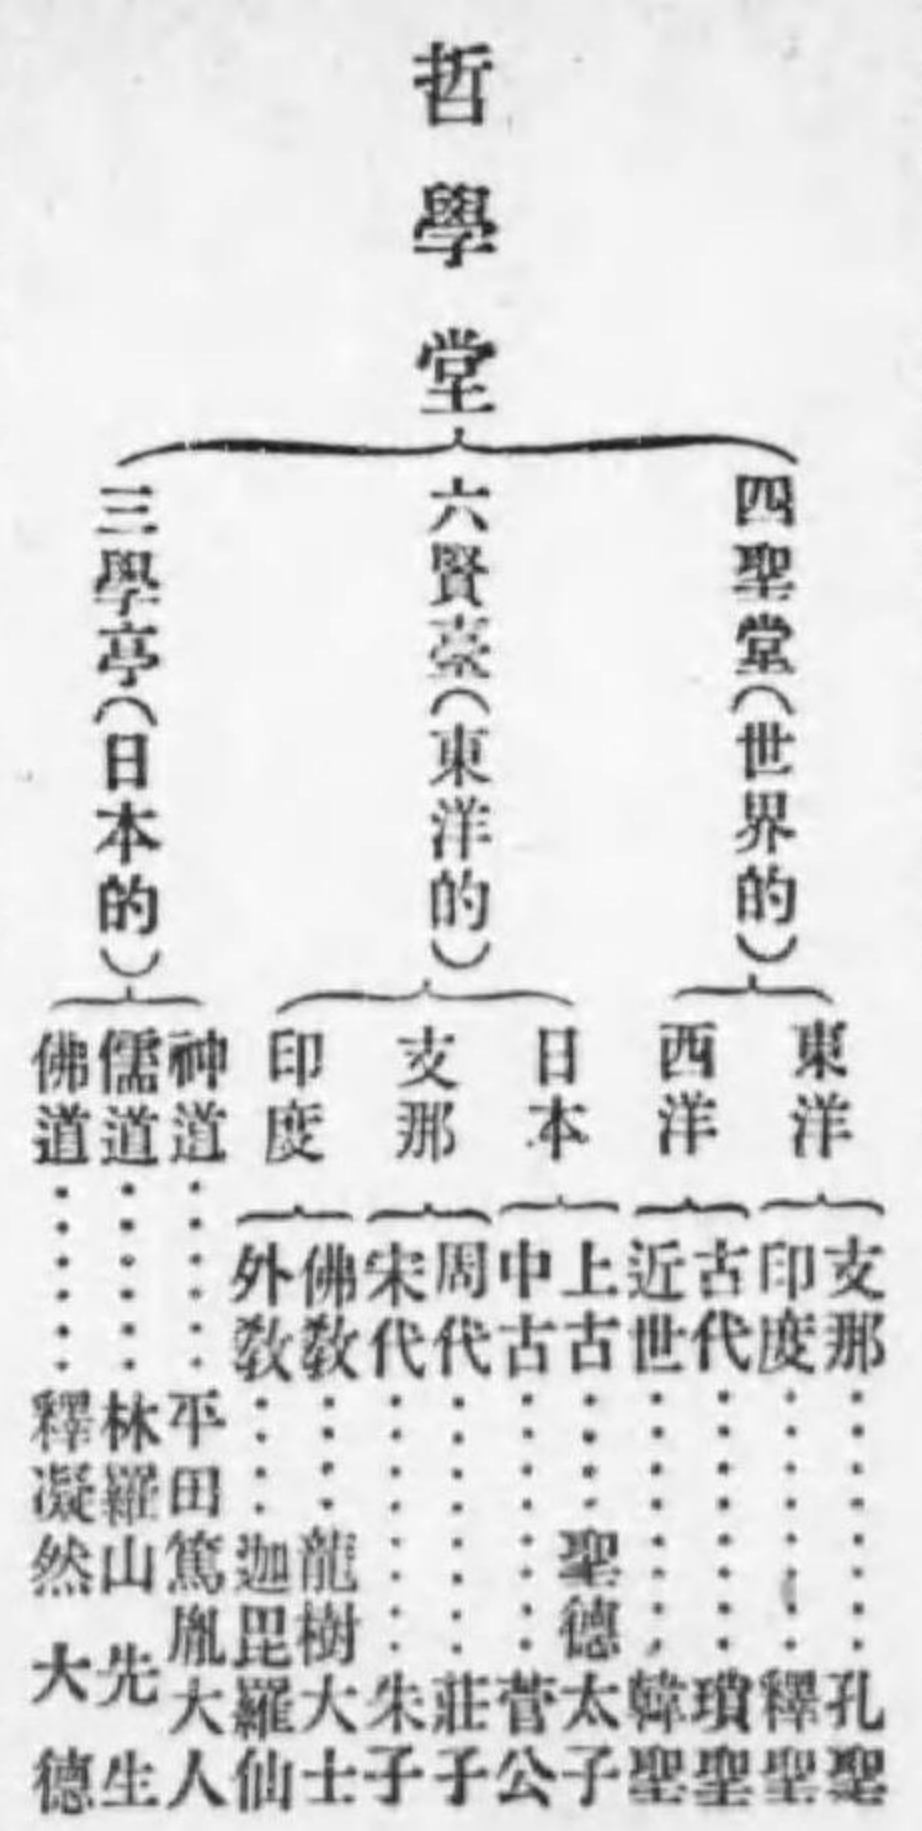 哲學堂
四聖堂(世界的)
東洋
支那……孔聖
印度……釋聖
西洋
古代……瑣聖
近世……韓聖
六賢臺(東洋的)
日本
上古……聖德太子
中古……菅公
支那
周代……莊子
宋代……朱子
印度
佛敎……龍樹大士
外敎……迦毘羅仙
三學亭(日本的)
神道……平田篤胤大人
儒道……林羅山先生
佛道……釋凝然大德